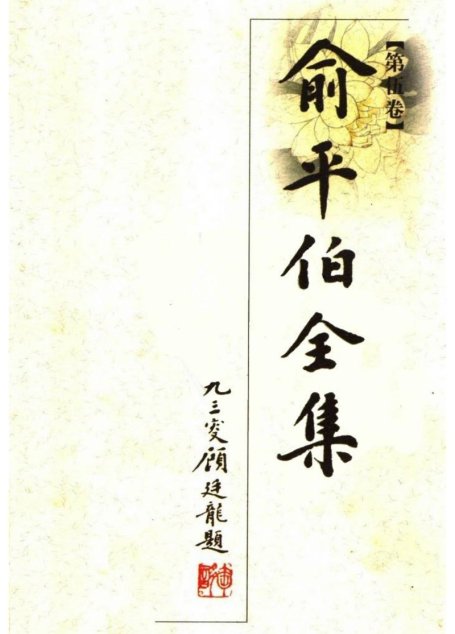 【第伍卷】
俞平伯全集
九三叟顾廷龍題